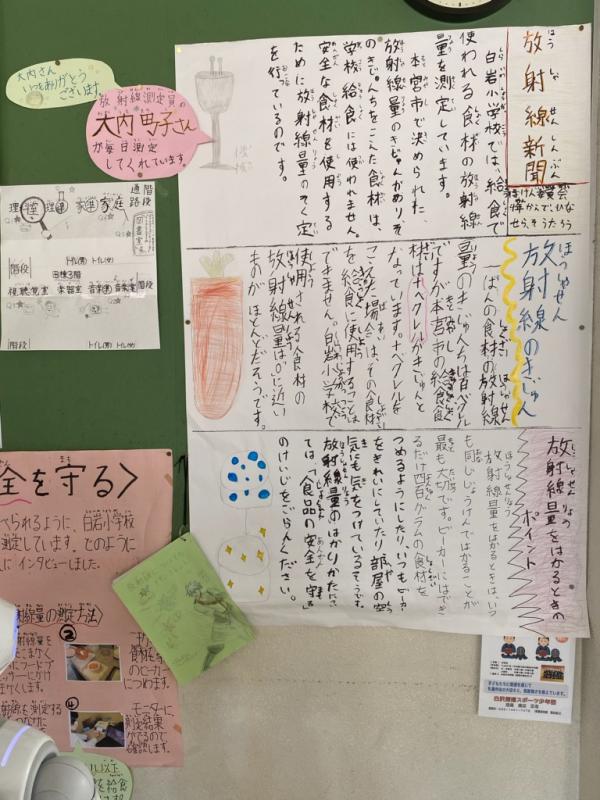 放射線新聞
ほうしゃせんしんぶん
白岩小学校では、給食で
使われる食材の放射線
量を測定しています。
本宮市で決められた、
放射線量のきじゅんがめりぞ
のきじゅんちをこえた食材は、
学校給食には使われません。
安全な食材を使用する
ために放射線量のそく定
を行っているのです。
放射線のきじゅん
一ぱんの食材の放射線
量のきじゅんちは百ベクレル
ですが本宮市の給食食
材は十ベクレルがきじゅんと
なっています。十ベクレルを
こえた場合は、その食材
を給食に使用することは
できません。白岩小学校で
使用される食材の
放射線量は、0に近い
ものがほとんどだそうです。
放射線量をはかるときの
ポイント
放射線量をはかるときは、いつ
も同じじょうけんではかることが
最も大切です。ビーカーにはでき
るだけ四百グラムの食材を
つめるようにしたり、いつもビーカー
をきれいにしていたり、部屋の空
気にも気をつけているそうです。
放射線量のはかりかたにつ
いては、「食品の安全を守る」
のけいじをごらんください。
大内さん
いつもありがとう
ございます
放射線測定員の
大内 男子さん
が毎日測定
してくれています。
階段
通路
図書室
理
理
家
家庭
階段
トイレ(男)
トイレ(女)
日棟3階
視聴覚室
楽器室
音楽室
階段
階段
トイレ(男)
トイレ(女)
全を守る〉
べられるように、白岩小学校
測定しています。どのように
にインタビューしました。
線量の測定方法〉
②
のビーカー
につめます。
④
モニターに、
測定結果
がでるので
確認します。
以下